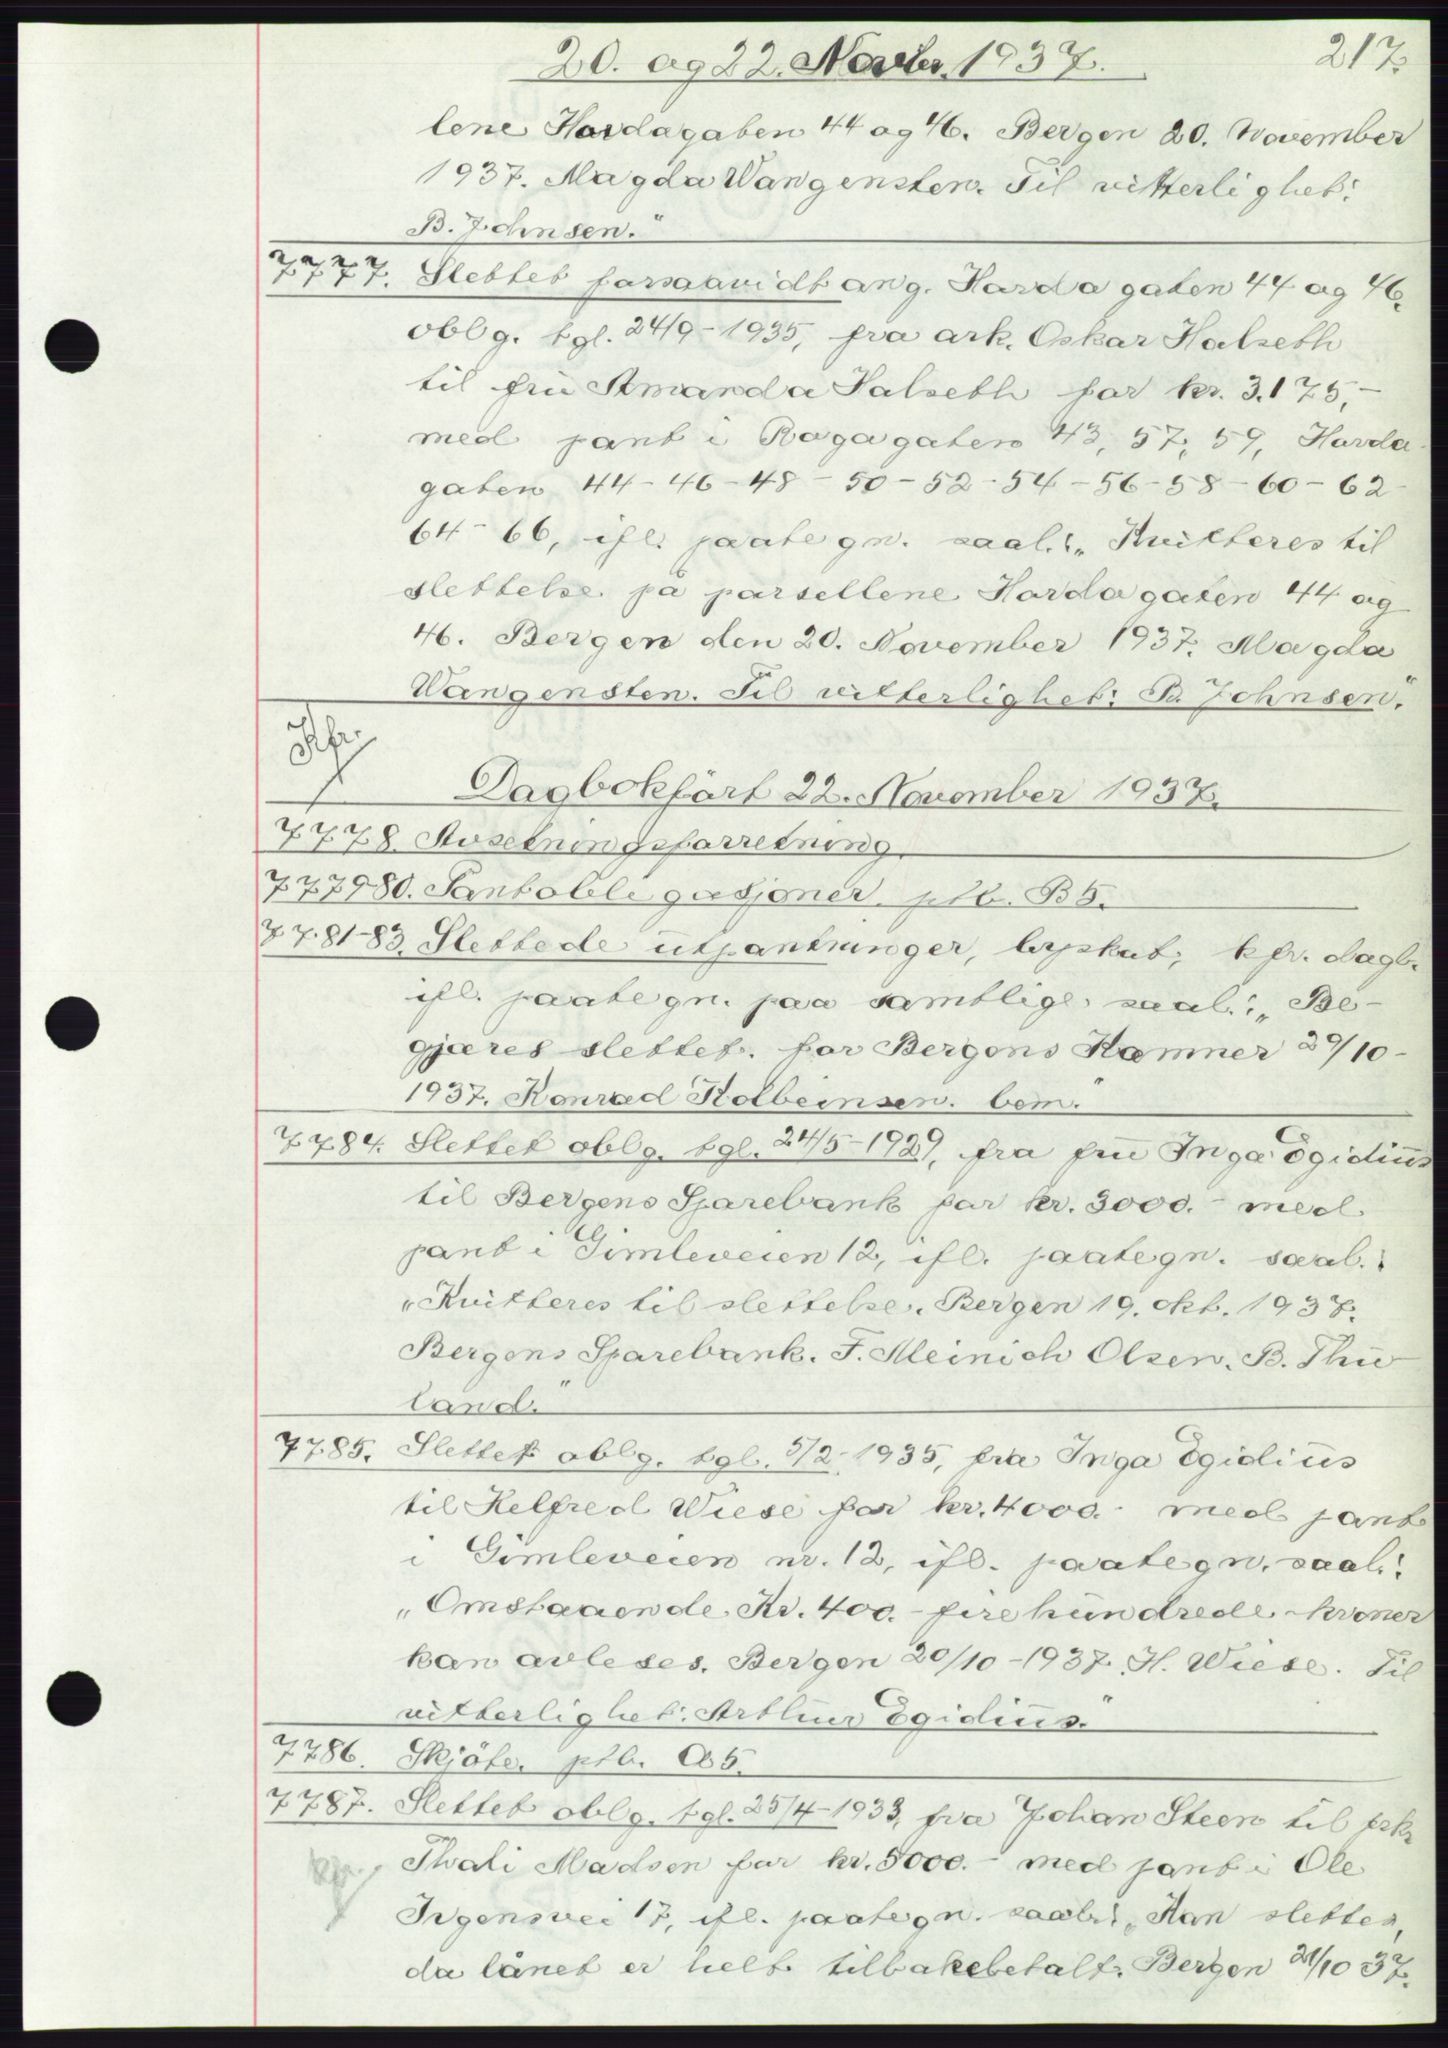 20. og 22. Novbr. 1937.
217.
lene Hardagaten 44 og 46. Bergen 20. November
1937. Magda Wangensten. Til vitterlighet:
B. Johnsen."
7777. Slettet forsaavidt ang. Hardagaten 44 og 46.
oblg. tgl. 24/9-1935, fra ark. Oskar Halseth
til fru Amanda Halseth for kr. 3.175,-
med pant i Rogagaten 43, 57, 59, Harda-
gaten 44-46-48-50-52-54-56-58-60-62
64-66, ifl. paategn. saal.: „Kvitteres til
slettelse på parsellene Hardagaten 44 og
46. Bergen den 20. November 1937. Magda
Wangensten. Til vitterlighet: B. Johnsen."
Kfr.
Dagbokført 22. November 1937.
7778. Avsetningsforretning.
7779-80. Pantobligasjoner. ptb. B5.
7781-83. Slettede utpantninger, byskat; kfr. dagb.
ifl. paategn. paa samtlige saal.: „Be-
gjæres slettet. for Bergens Kæmner 29/10-
1937. Konrad Kolbeinsen. bem."
7784. Slettet oblg. tgl. 24/5-1929, fra fru Inga Egidius
til Bergens Sparebank for kr. 3000.- med
pant i Gimleveien 12, ifl. paategn. saal.:
„Kvitteres til slettelse. Bergen 19. okt. 1937.
Bergens Sparebank. F. Meinich Olsen. B. Thu-
land."
7785. Slettet oblg. tgl. 5/2-1935, fra Inga Egidius
til Helfred Wiese for kr. 4000.- med pant
i Gimleveien nr. 12, ifl. paategn. saal.:
„Omstaaende Kr. 400.- fire hundrede kroner
kan avleses. Bergen 20/10-1937. H. Wiese. Til
vitterlighet: Arthur Egidius."
7786. Skjøte. ptb. A5.
7787. Slettet oblg. tgl. 25/4-1933, fra Johan Steen til frk.
kfr. Thali Madsen for kr. 5000.- med pant i Ole
Irgensvei 17, ifl. paategn. saal.: „Kan slettes,
da lånet er helt tilbakebetalt. Bergen 21/10 37.